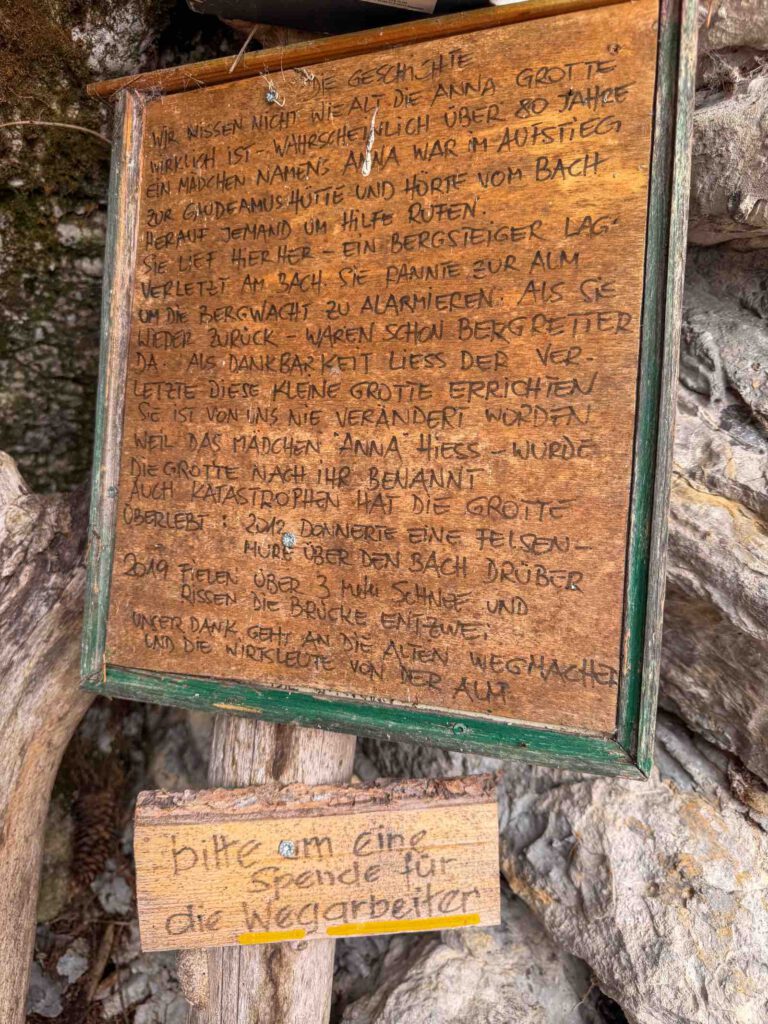 DIE GESCHICHTE
WIR WISSEN NICHT WIE ALT DIE ANNA GROTTE
WIRKLICH IST - WAHRSCHEINLICH ÜBER 80 JAHRE
EIN MÄDCHEN NAMENS ANNA WAR IM AUFSTIEG
ZUR GAUDEAMUSHÜTTE UND HÖRTE VOM BACH
HERAUF JEMAND UM HILFE RUFEN.
SIE LIEF HIERHER - EIN BERGSTEIGER LAG
VERLETZT AM BACH. SIE RANNTE ZUR ALM
UM DIE BERGWACHT ZU ALARMIEREN. ALS SIE
WIEDER ZURÜCK - WAREN SCHON BERGRETTER
DA. ALS DANKBARKEIT LIESS DER VER-
LETZTE DIESE KLEINE GROTTE ERRICHTEN
SIE IST VON UNS NIE VERÄNDERT WORDEN
WEIL DAS MÄDCHEN "ANNA" HIESS - WURDE
DIE GROTTE NACH IHR BENANNT
AUCH KATASTROPHEN HAT DIE GROTTE
ÜBERLEBT : 2012 DONNERTE EINE FELSEN-
MURE ÜBER DEN BACH DRÜBER
2019 FIELEN ÜBER 3 Meter SCHNEE UND
RISSEN DIE BRÜCKE ENTZWEI
UNSER DANK GEHT AN DIE ALTEN WEGMACHER
UND DIE WIRTSLEUTE VON DER ALM
bitte um eine
Spende für
die Wegarbeiter